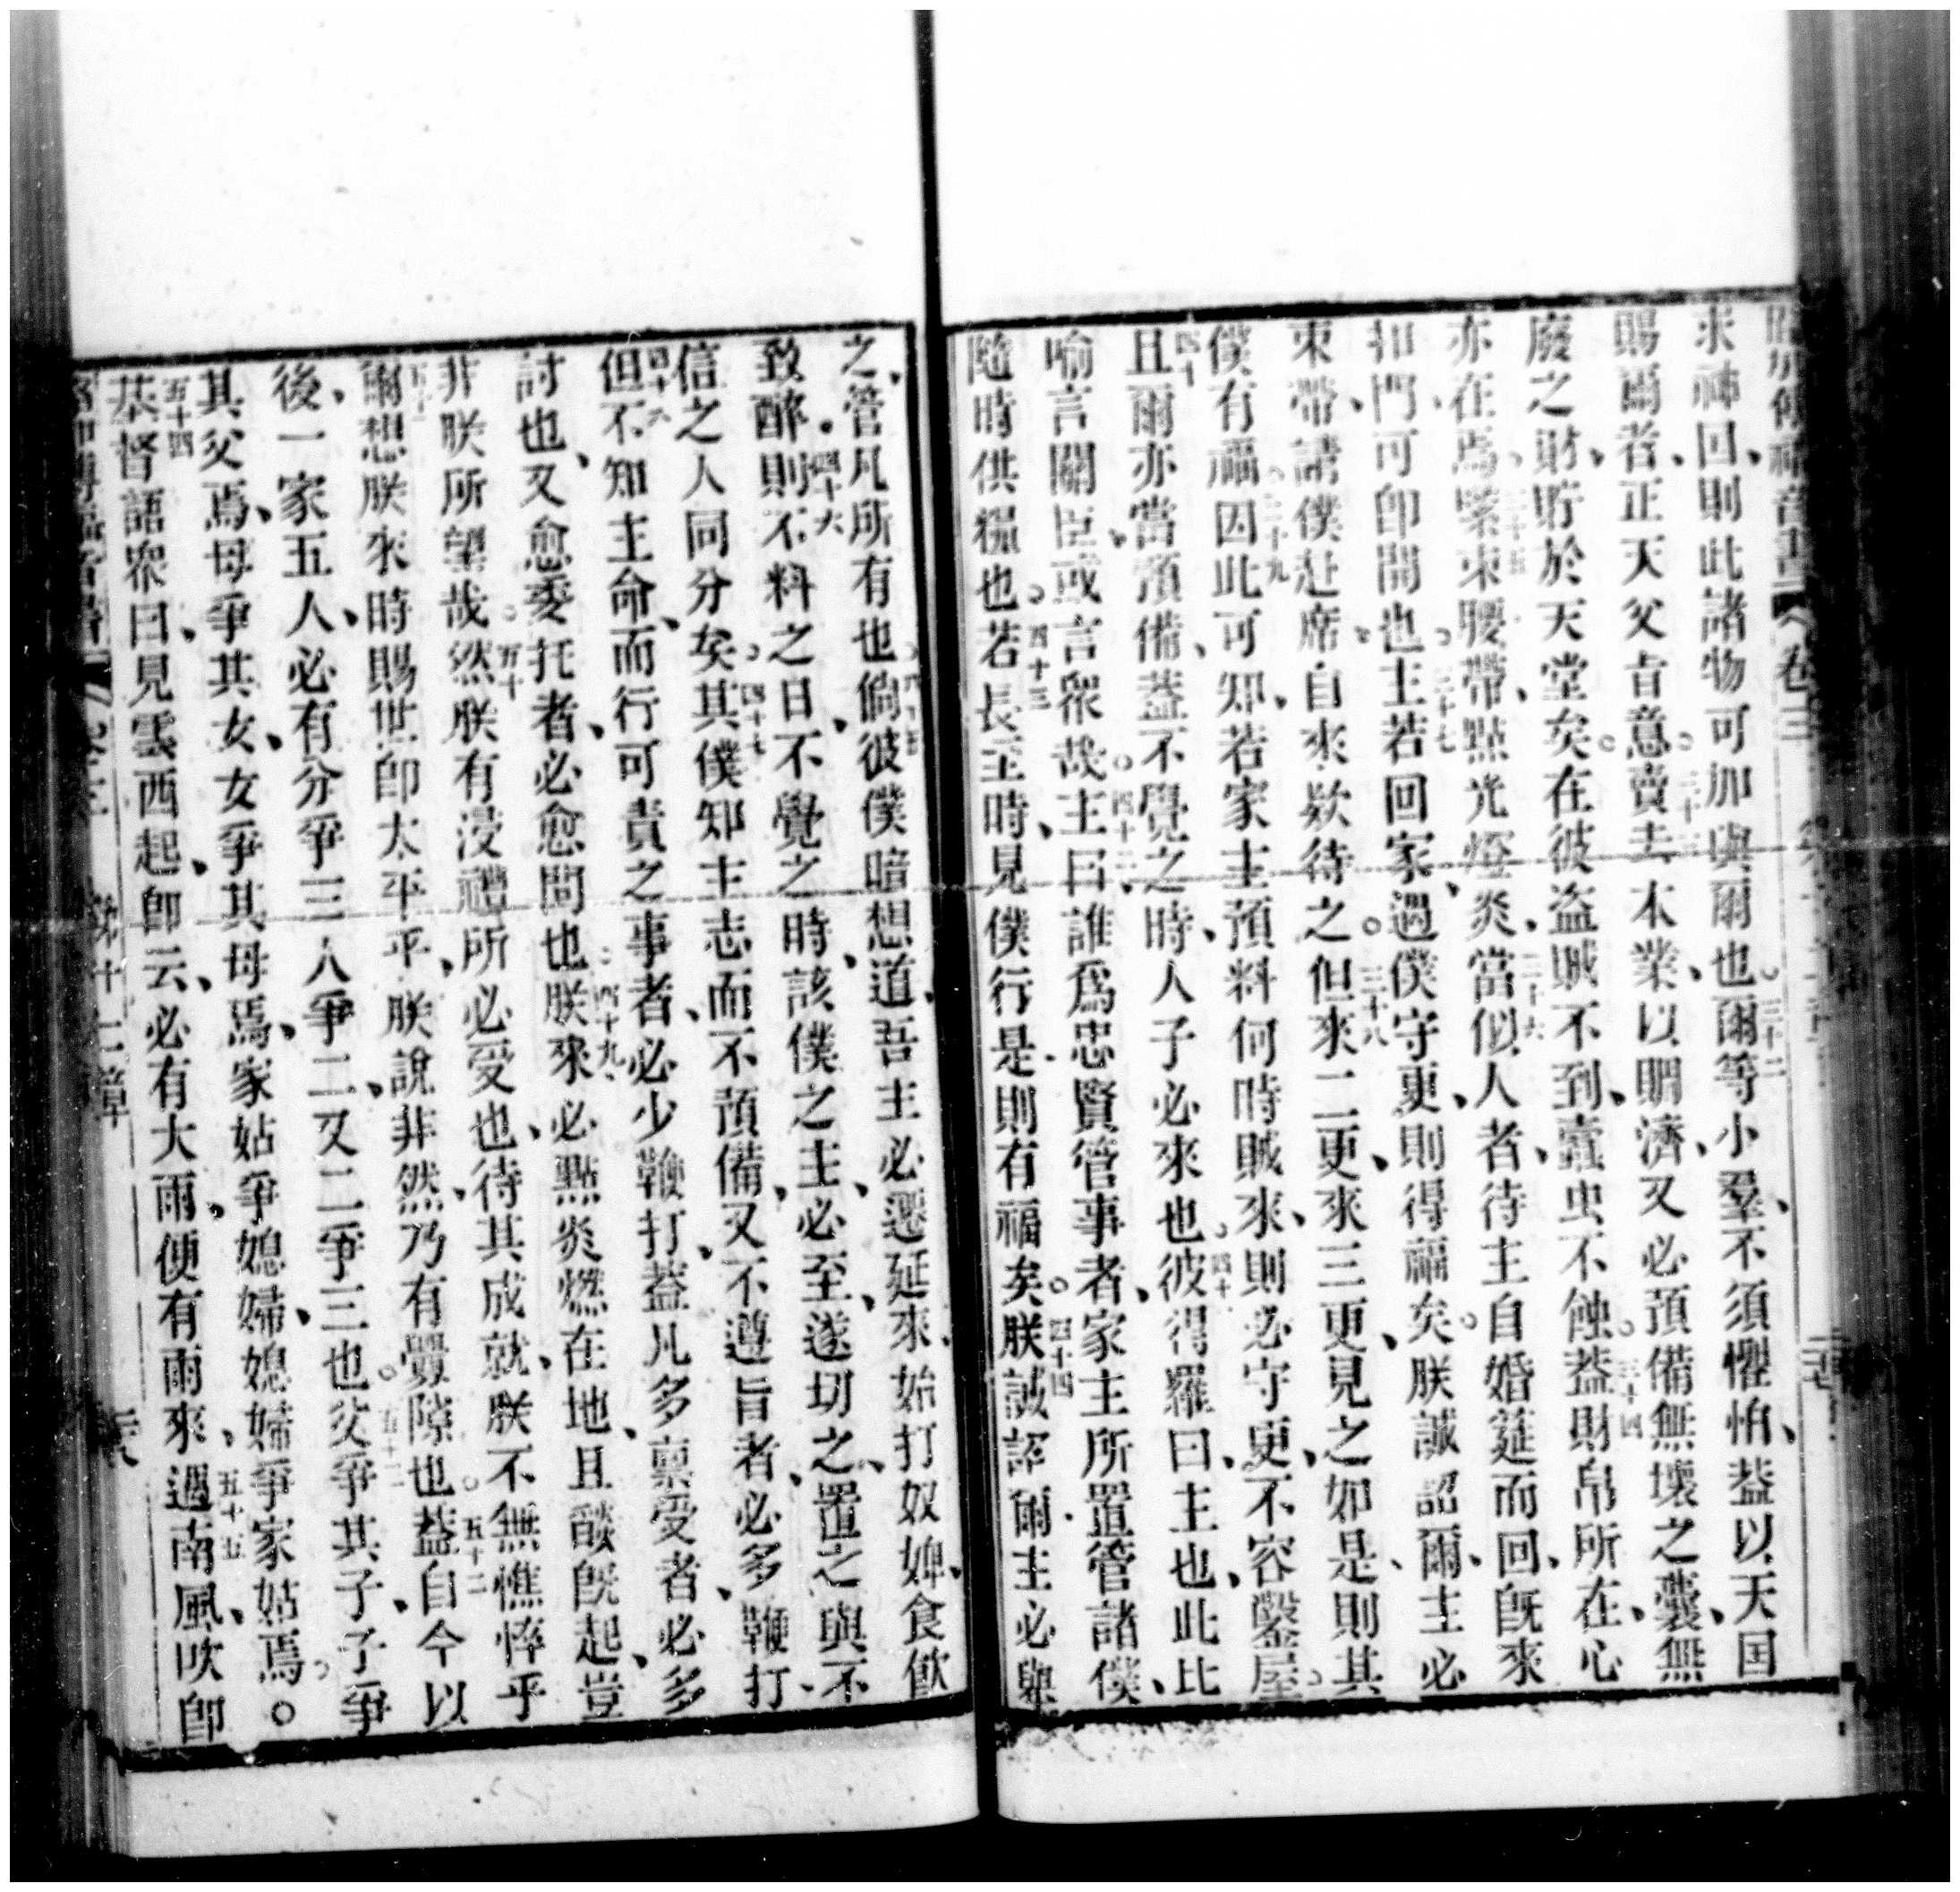 路加傳福音書 卷三
求神囯、則此諸物可加與爾也。三十二爾等小羣、不須懼怕、葢以天囯
賜爾者、正天父肯意。三十三賣去本業、以賙濟、又必預備無壞之囊、無
廢之財、貯於天堂矣。在彼盜賊不到、蠧虫不蝕。三十四葢財帛所在、心
亦在焉、三十五緊束腰帶、點光燈炎、三十六當似人者、待主自婚筵而回、旣來
扣門、可即開也。三十七主若回家、遇僕守更、則得福矣。朕誠詔爾、主必
束帶、請僕赴席、自來欵待之。三十八但來二更、來三更、見之如是、則其
僕有福。三十九因此可知、若家主預料何時賊來、則必守更、不容鑿屋。
四十且爾亦當預備、葢不覺之時、人子必來也。四十彼得羅曰、主也、此比
喻言關臣、或言衆哉。四十二主曰、誰爲忠賢管事者、家主所置管諸僕、
隨時供糧也。四十三若長至時、見僕行是、則有福矣。四十四朕誠詔爾、主必與
之、管凡所有也。四十五倘彼僕暗想道、吾主必遷延來、始打奴婢、食飲
致醉。四十六則不料之日、不覺之時、該僕之主、必至、遂切之、置之與不
信之人同分矣。四十七其僕知主志、而不預備、又不遵旨者、必多鞭打、
四十八但不知主命、而行可責之事者、必少鞭打、葢凡多禀受者、必多
討也、又愈委托者、必愈問也。四十九朕來、必點炎燃在地、且燄旣起、豈
非朕所望哉。五十然朕有浸禮所必受也、待其成就、朕不無憔悴乎
五十一爾想朕來時、賜世即太平乎、朕說非然、乃有釁隙也。五十二葢自今以
後、一家五人、必有分爭、三人爭二、又二爭三也。五十三父爭其子、子爭
其父焉、母爭其女、女爭其母焉、家姑爭媳婦、媳婦爭家姑焉。○
五十四基督語衆曰、見雲西起、即云、必有大雨、便有雨來、五十五遇南風吹、即
路加傳福音書 卷三 第十二章 二六